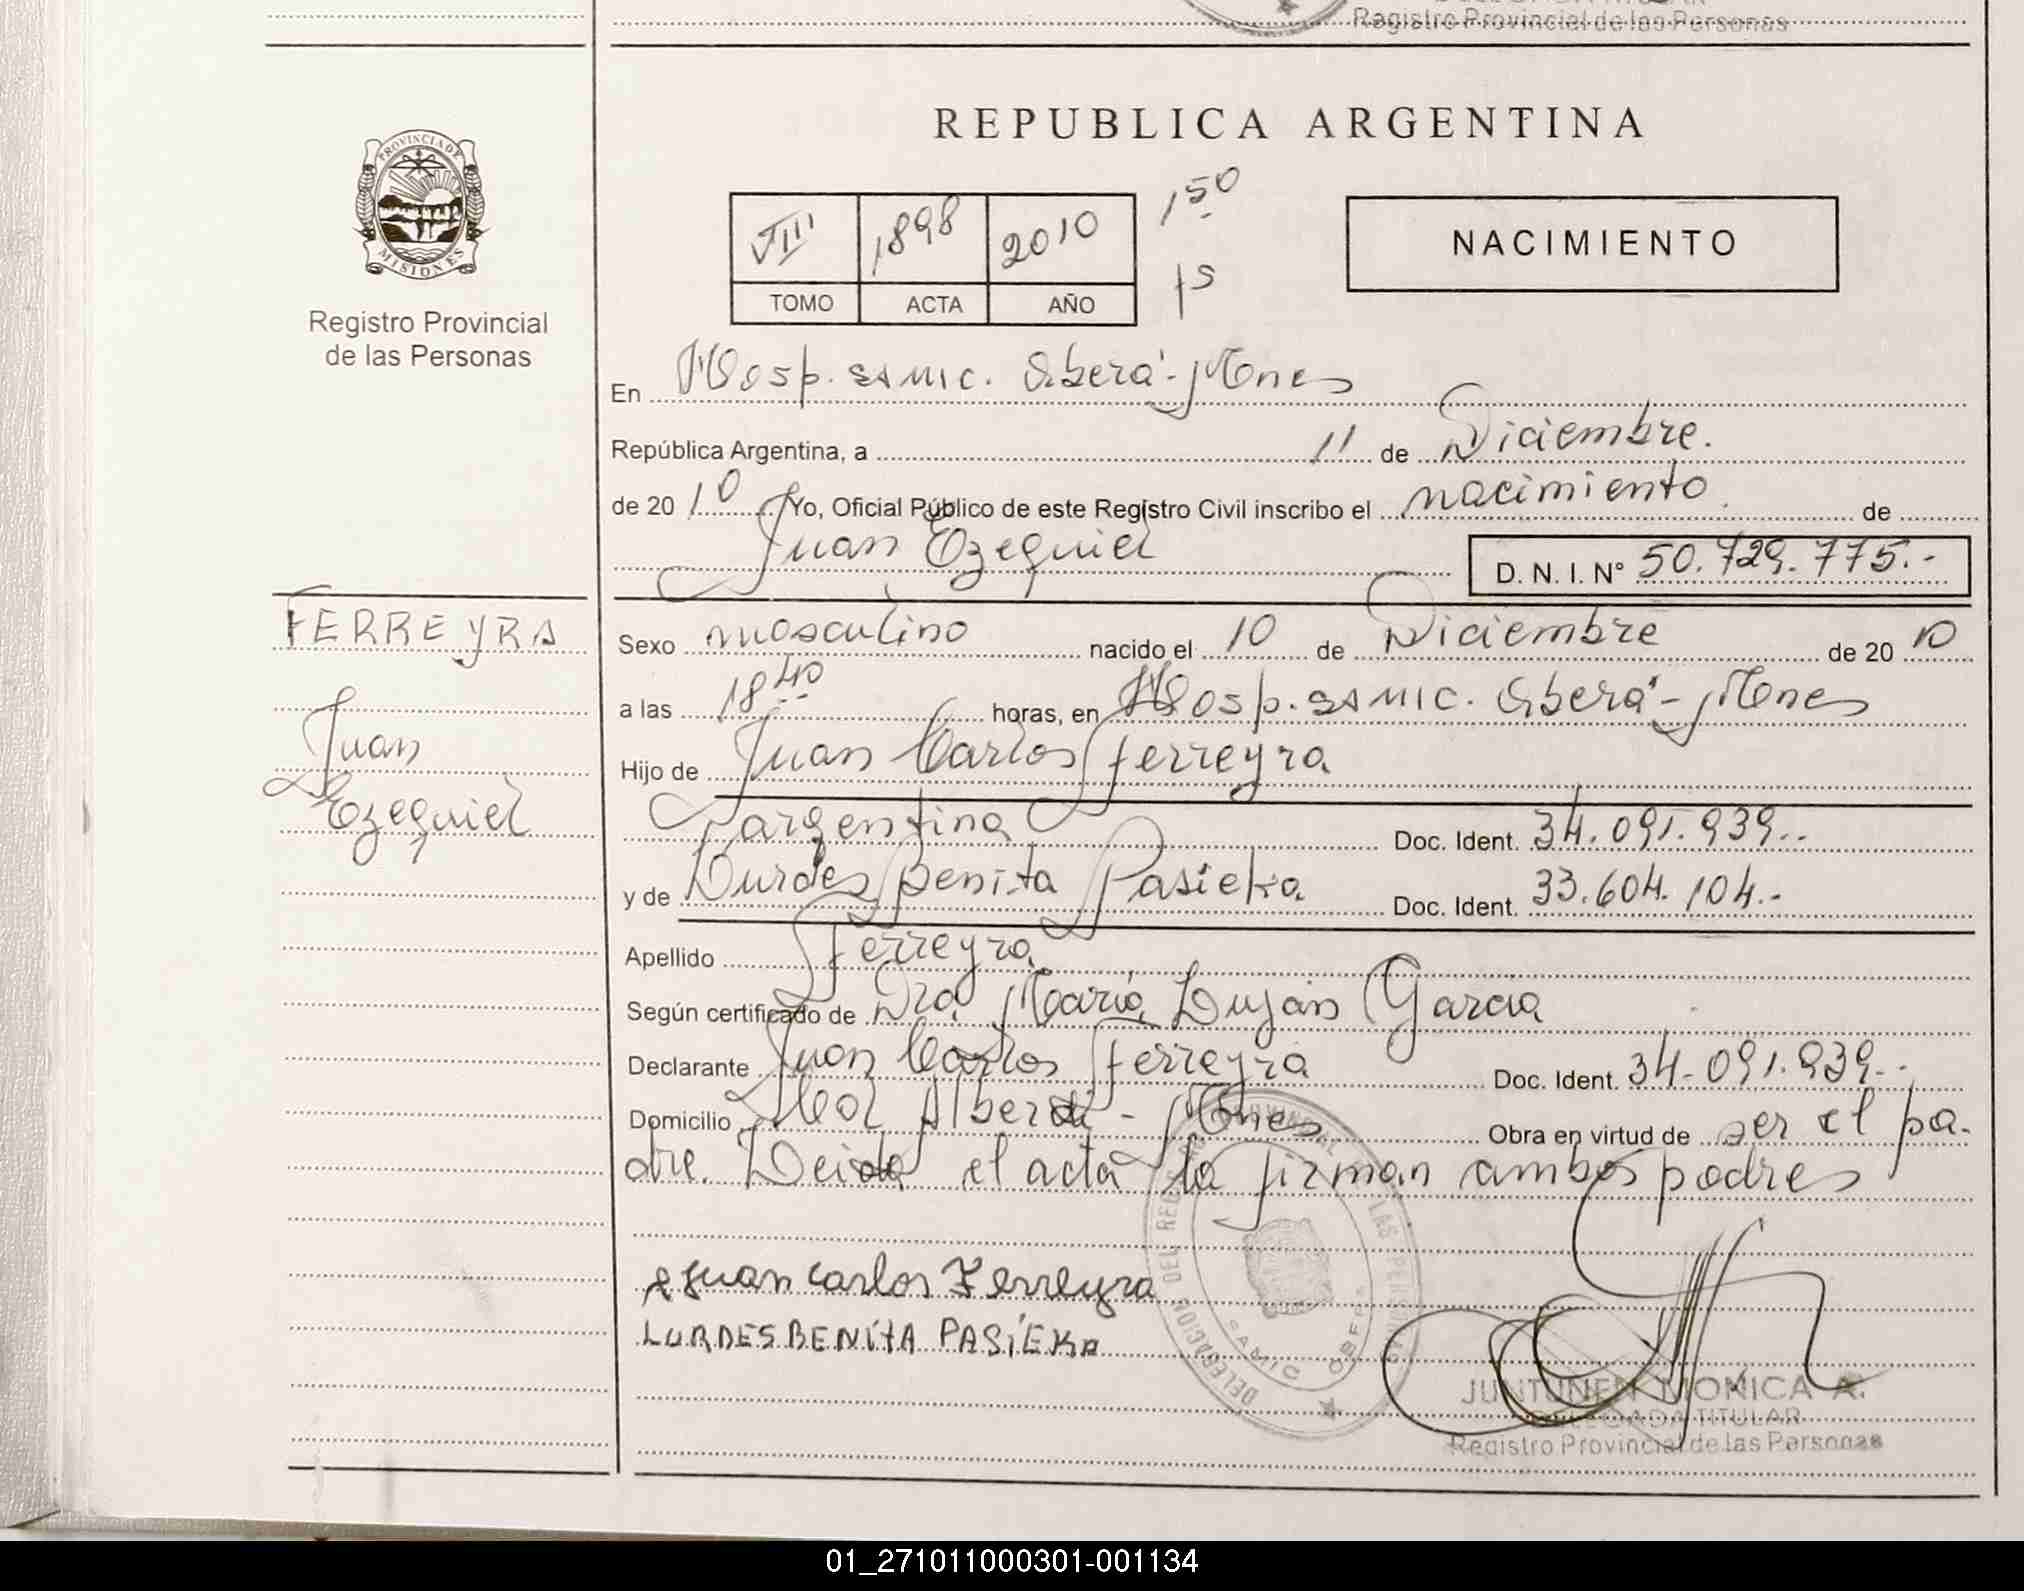 Registro Provincial de las Personas
PROVINCIA DE
MISIONES
Registro Provincial
de las Personas
REPUBLICA ARGENTINA
VIII 1898 2010
TOMO ACTA AÑO
150
15
NACIMIENTO
En Hosp. SAMIC. Oberá - Mnes
República Argentina, a 11 de Diciembre.
de 20 10 Yo, Oficial Público de este Registro Civil inscribo el nacimiento de
Juan Ezequiel
D. N. I. N° 50.729.775.-
FERREYRA
Juan
Ezequiel
Sexo masculino nacido el 10 de Diciembre de 20 10
a las 18 40 horas, en Hosp. SAMIC. Oberá - Mnes
Hijo de Juan Carlos Ferreyra
argentina Doc. Ident. 34.091.939.-
y de Lurdes Benita Pasieka Doc. Ident. 33.604.104.-
Apellido Ferreyra
Según certificado de Dra María Luján Garcia
Declarante Juan Carlos Ferreyra Doc. Ident. 34.091.939.-
Domicilio Col Alberdi - Mnes Obra en virtud de ser el pa-
dre. Leida el acta la firman ambos padres
Juan Carlos Ferreyra
LURDES BENITA PASIEKA
DELEGACION DEL REG. PROVINCIAL DE LAS PERSONAS
SAMIC OBERA
JUNTUNEN MONICA A.
DELEGADA TITULAR
Registro Provincial de las Personas
01_271011000301-001134